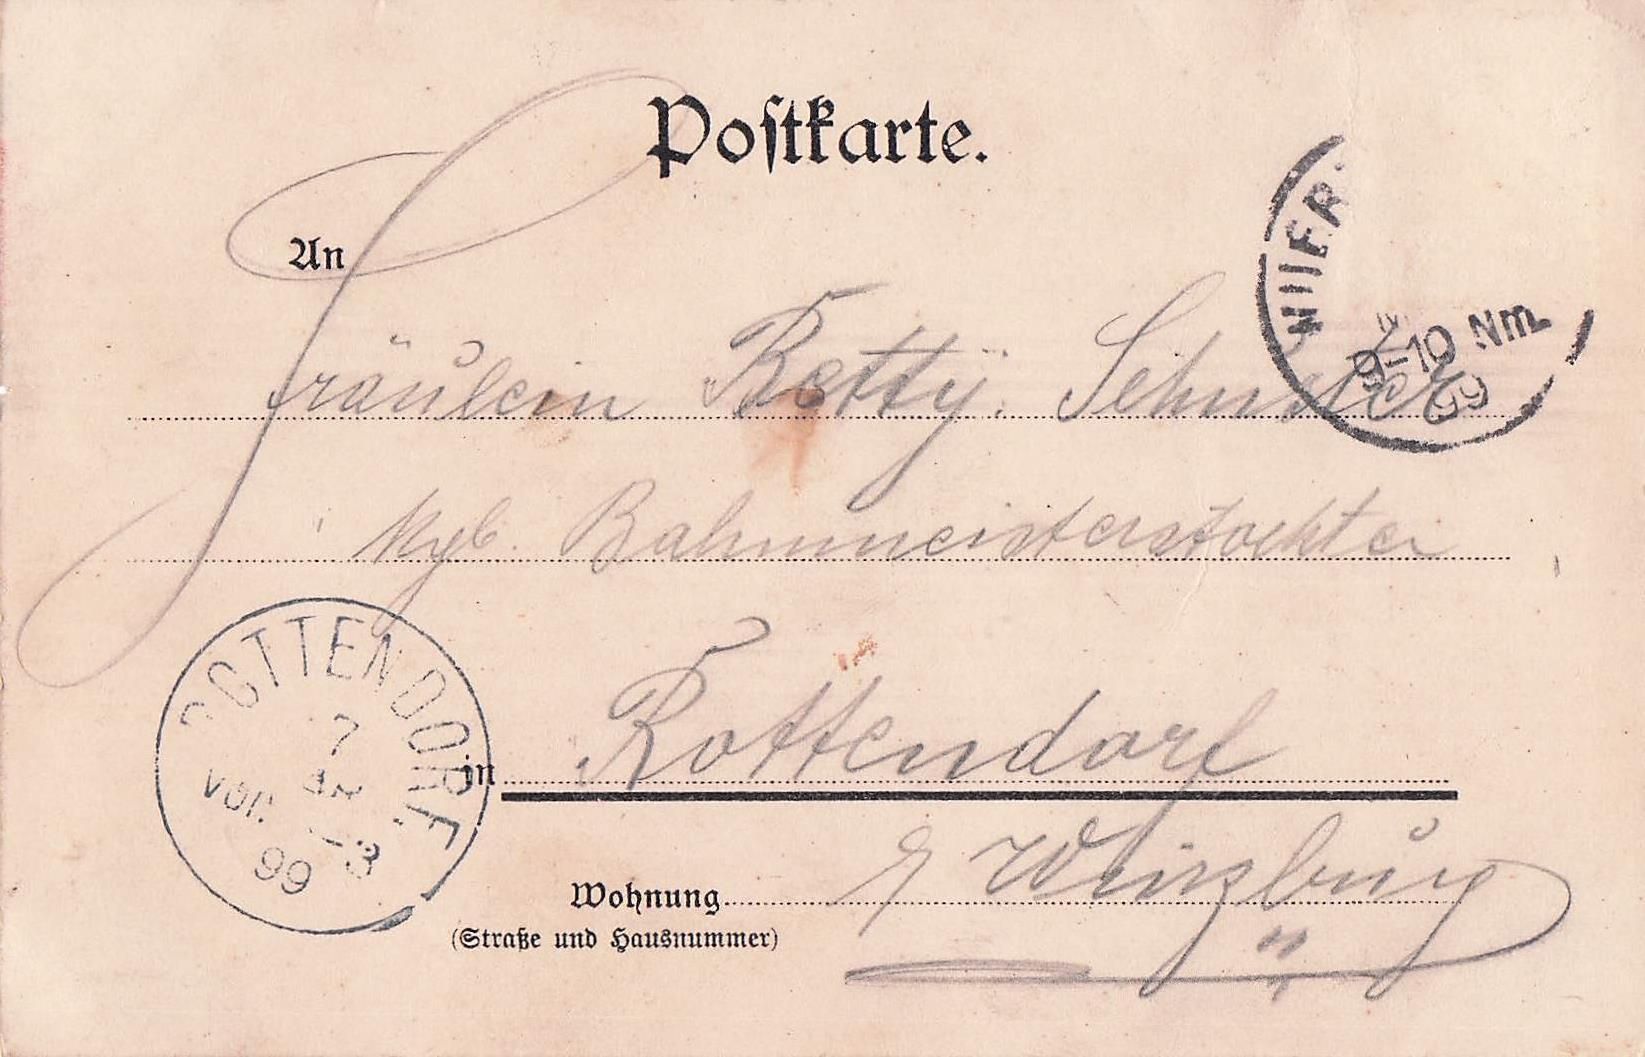 Postkarte.
An
Fräulein Betty Schuster
kgb. Bahnmeisterstochter
in Rottendorf
Würzburg
Wohnung
(Straße und Hausnummer)
9-10 Nm.
99
ROTTENDORF
7
Vor.
99